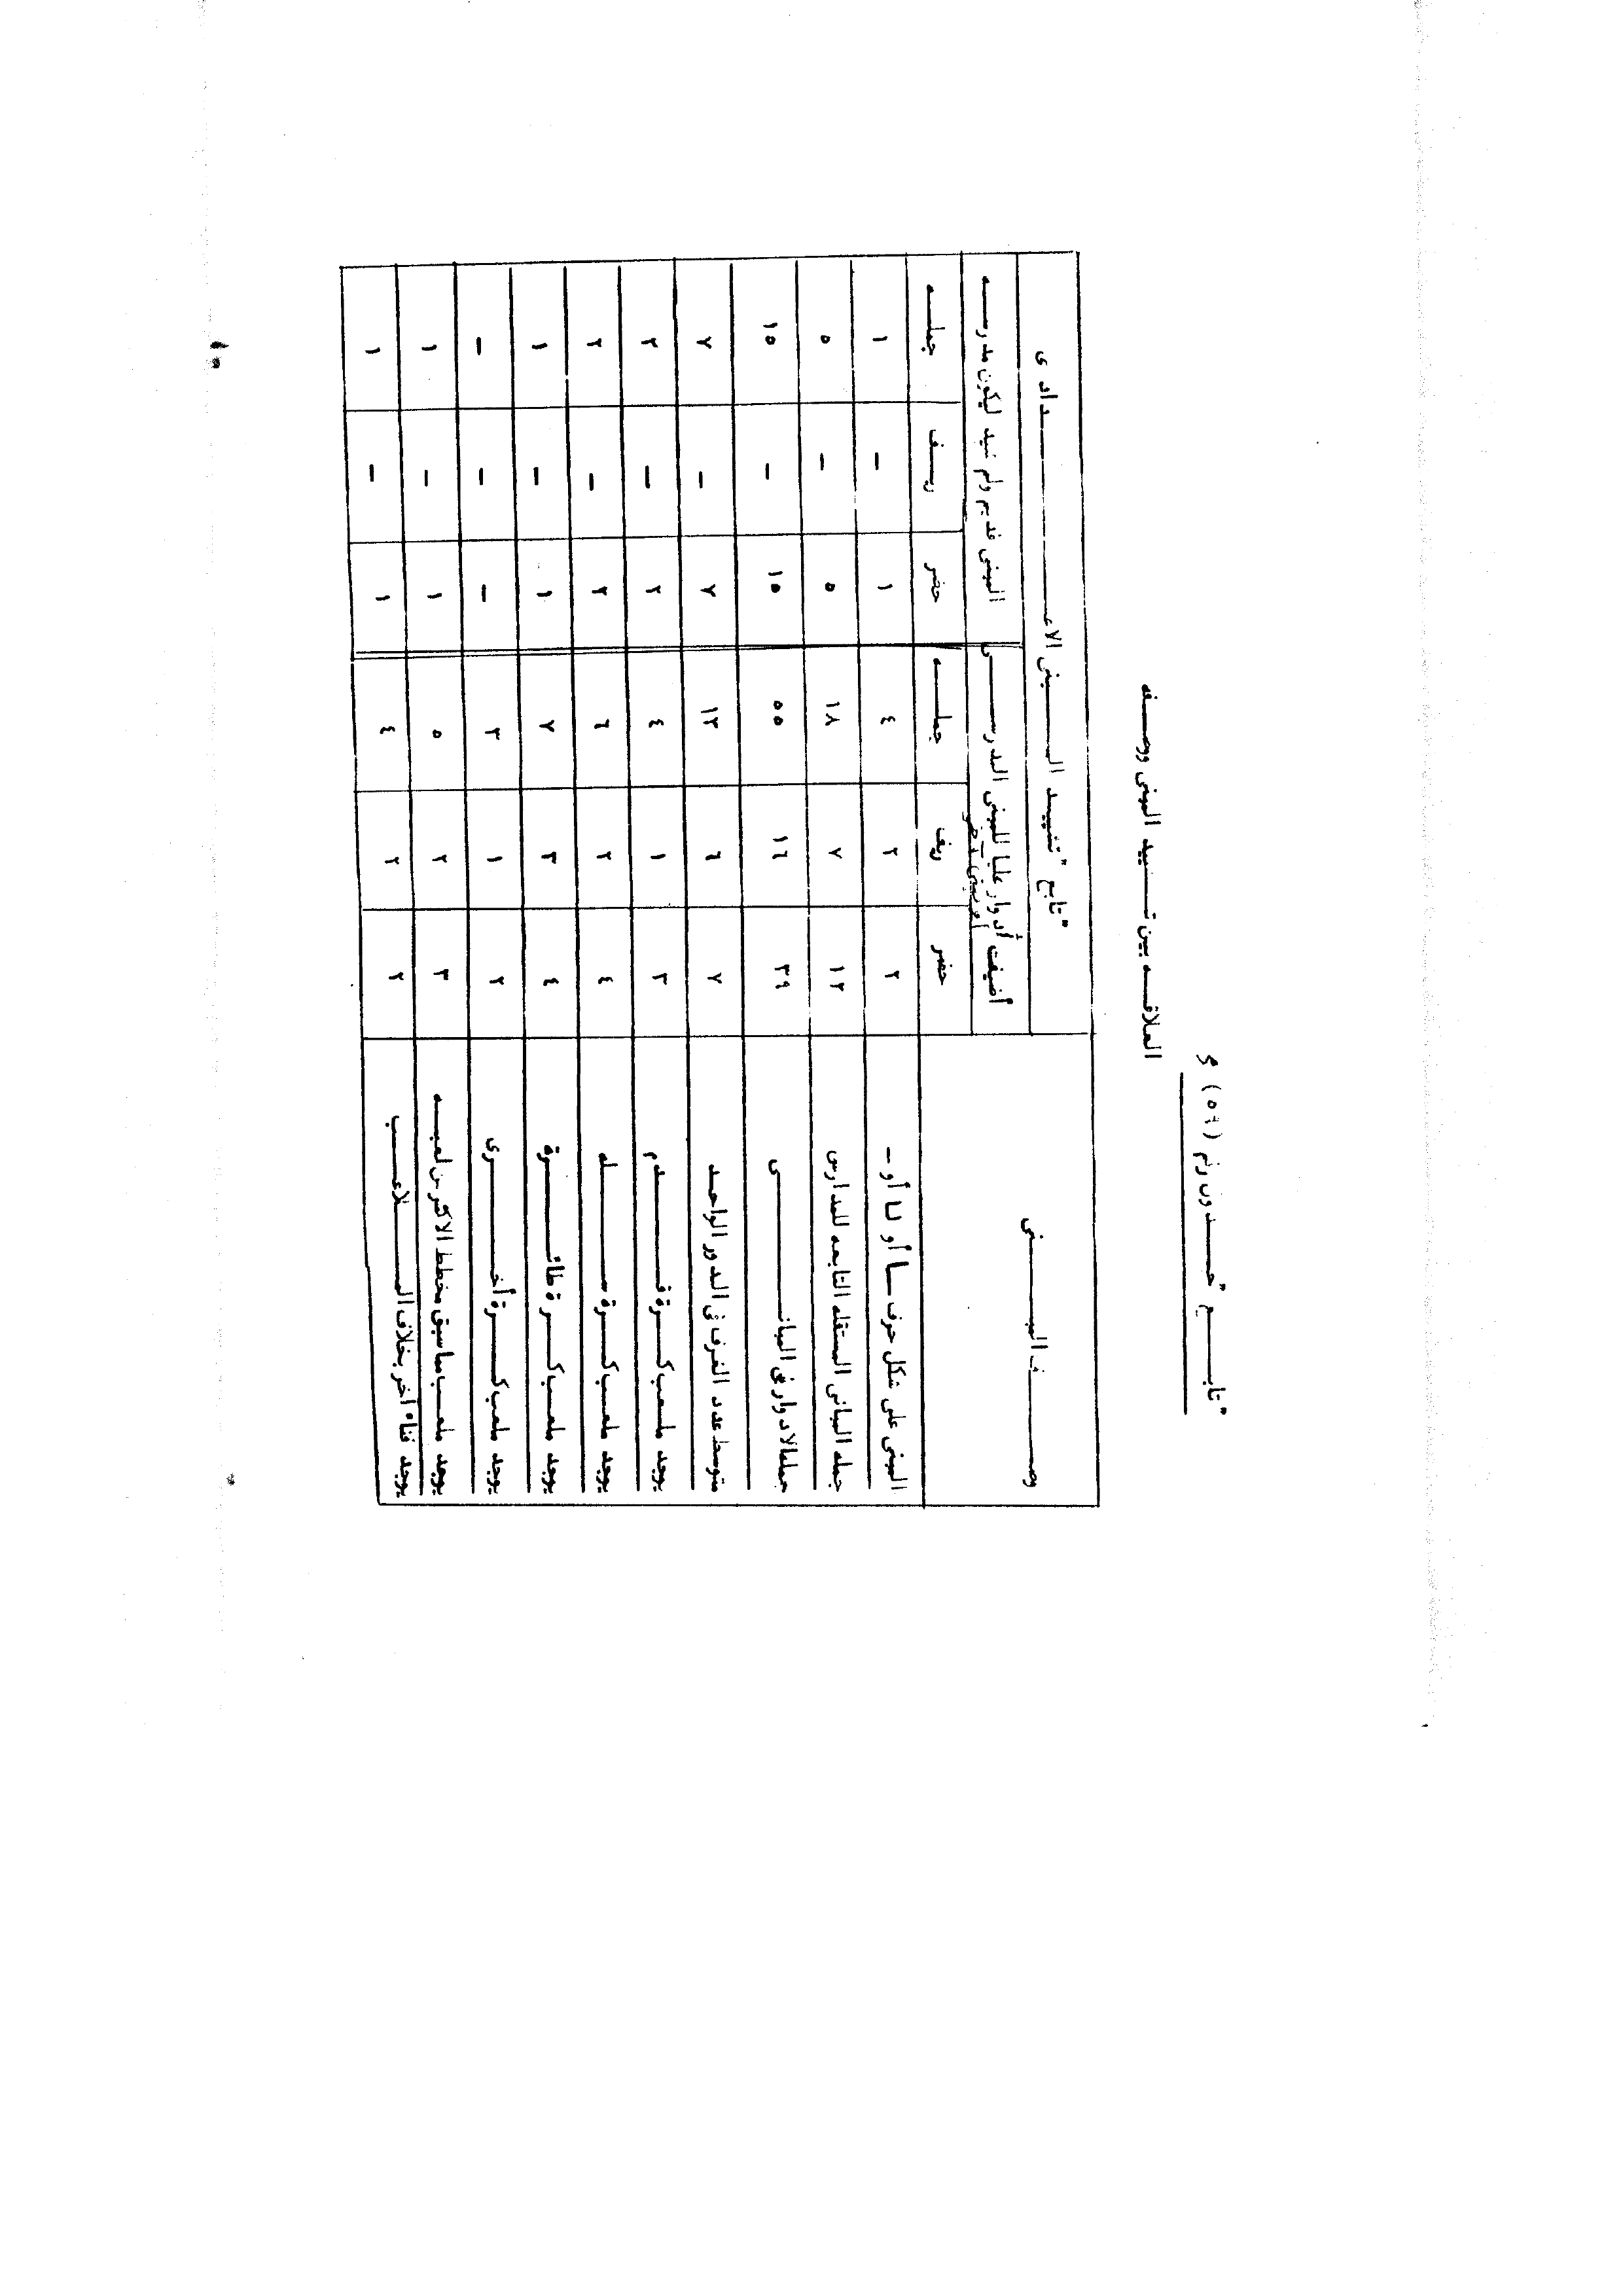 "تابع" جدول رقم (٥٦) و
العلاقه بين تشييد المبنى ووصفه
وصف المبنى "تابع" تشييد المبنى الاعدادى
أضيفت أدوار عليا للمبنى المدرسى المبنى قديم ولم يشيد ليكون مدرسه
حضر ريف جمله حضر ريف جمله
المبنى على شكل حرف أو أو – ٢ ٢ ٤ ١ – ١
جمله المبانى المستقله التابعه للمدارس ١٢ ٧ ١٨ ٥ – ٥
جملة الادوار في المبانى ٣٩ ١٦ ٥٥ ١٥ – ١٥
متوسط عدد الغرف في الدور الواحد ٧ ٦ ١٣ ٧ – ٧
يوجد ملعب كرة قدم ٣ ١ ٤ ٢ – ٢
يوجد ملعب كرة سله ٤ ٢ ٦ ٢ – ٢
يوجد ملعب كرة طائرة ٤ ٣ ٧ ١ – ١
يوجد ملعب كرة أخرى ٢ ١ ٣ – – –
يوجد ملعب مما سبق مخطط لاكثر من لعبه ٣ ٢ ٥ ١ – ١
يوجد فناء اخر بخلاف الملاعب ٢ ٢ ٤ ١ – ١